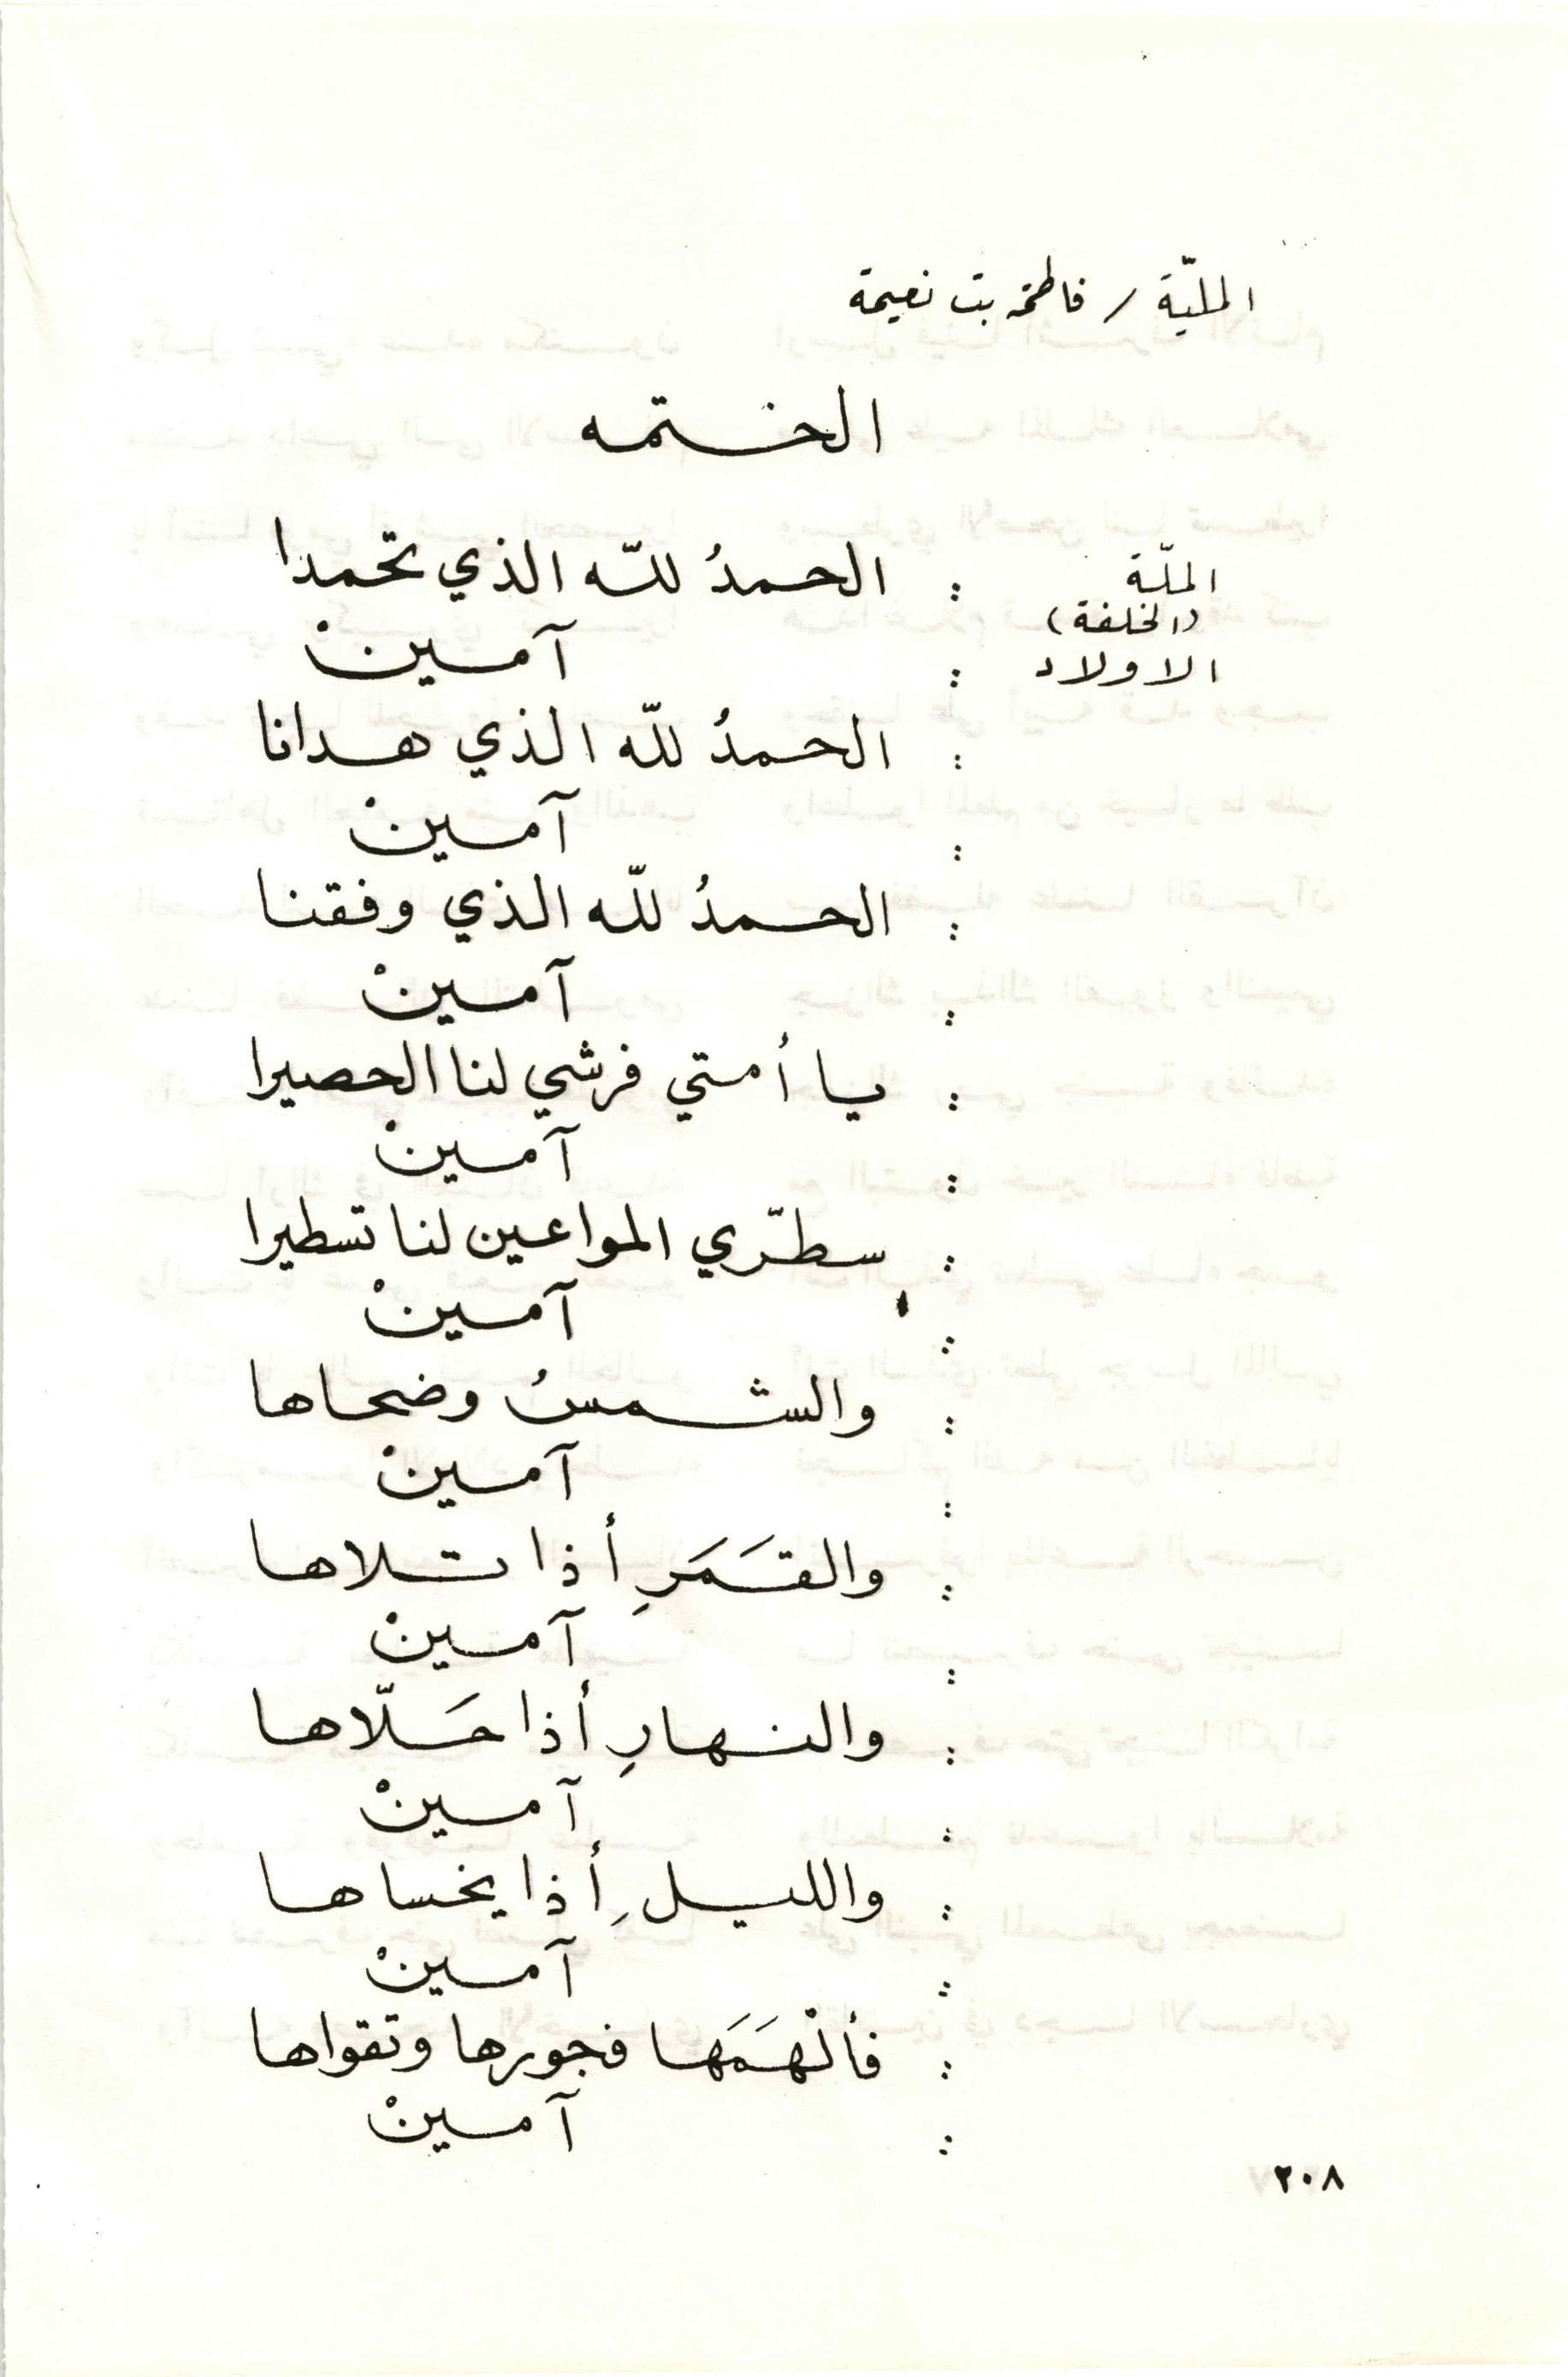 المليّة / فاطمة بنت نعيمة
الختمه
الملّة : الحمدُ للّه الذي تحمدا
(الخلفة)
الاولاد : آمـينْ
: الحمدُ للّه الذي هدانا
: آمـينْ
: الحمدُ للّه الذي وفقنا
: آمـينْ
: يا أمتي فرشي لنا الحصيرا
: آمـينْ
: سطّري المواعين لنا تسطيرا
: آمـينْ
: والشمسُ وضحاها
: آمـينْ
: والقَمَرِ أذا تلاها
: آمـينْ
: والنهارِ أذا حَلّاها
: آمـينْ
: والليلِ أذا يخساها
: آمـينْ
: فألْهَمَها فجورها وتقواها
: آمـينْ
٢٠٨